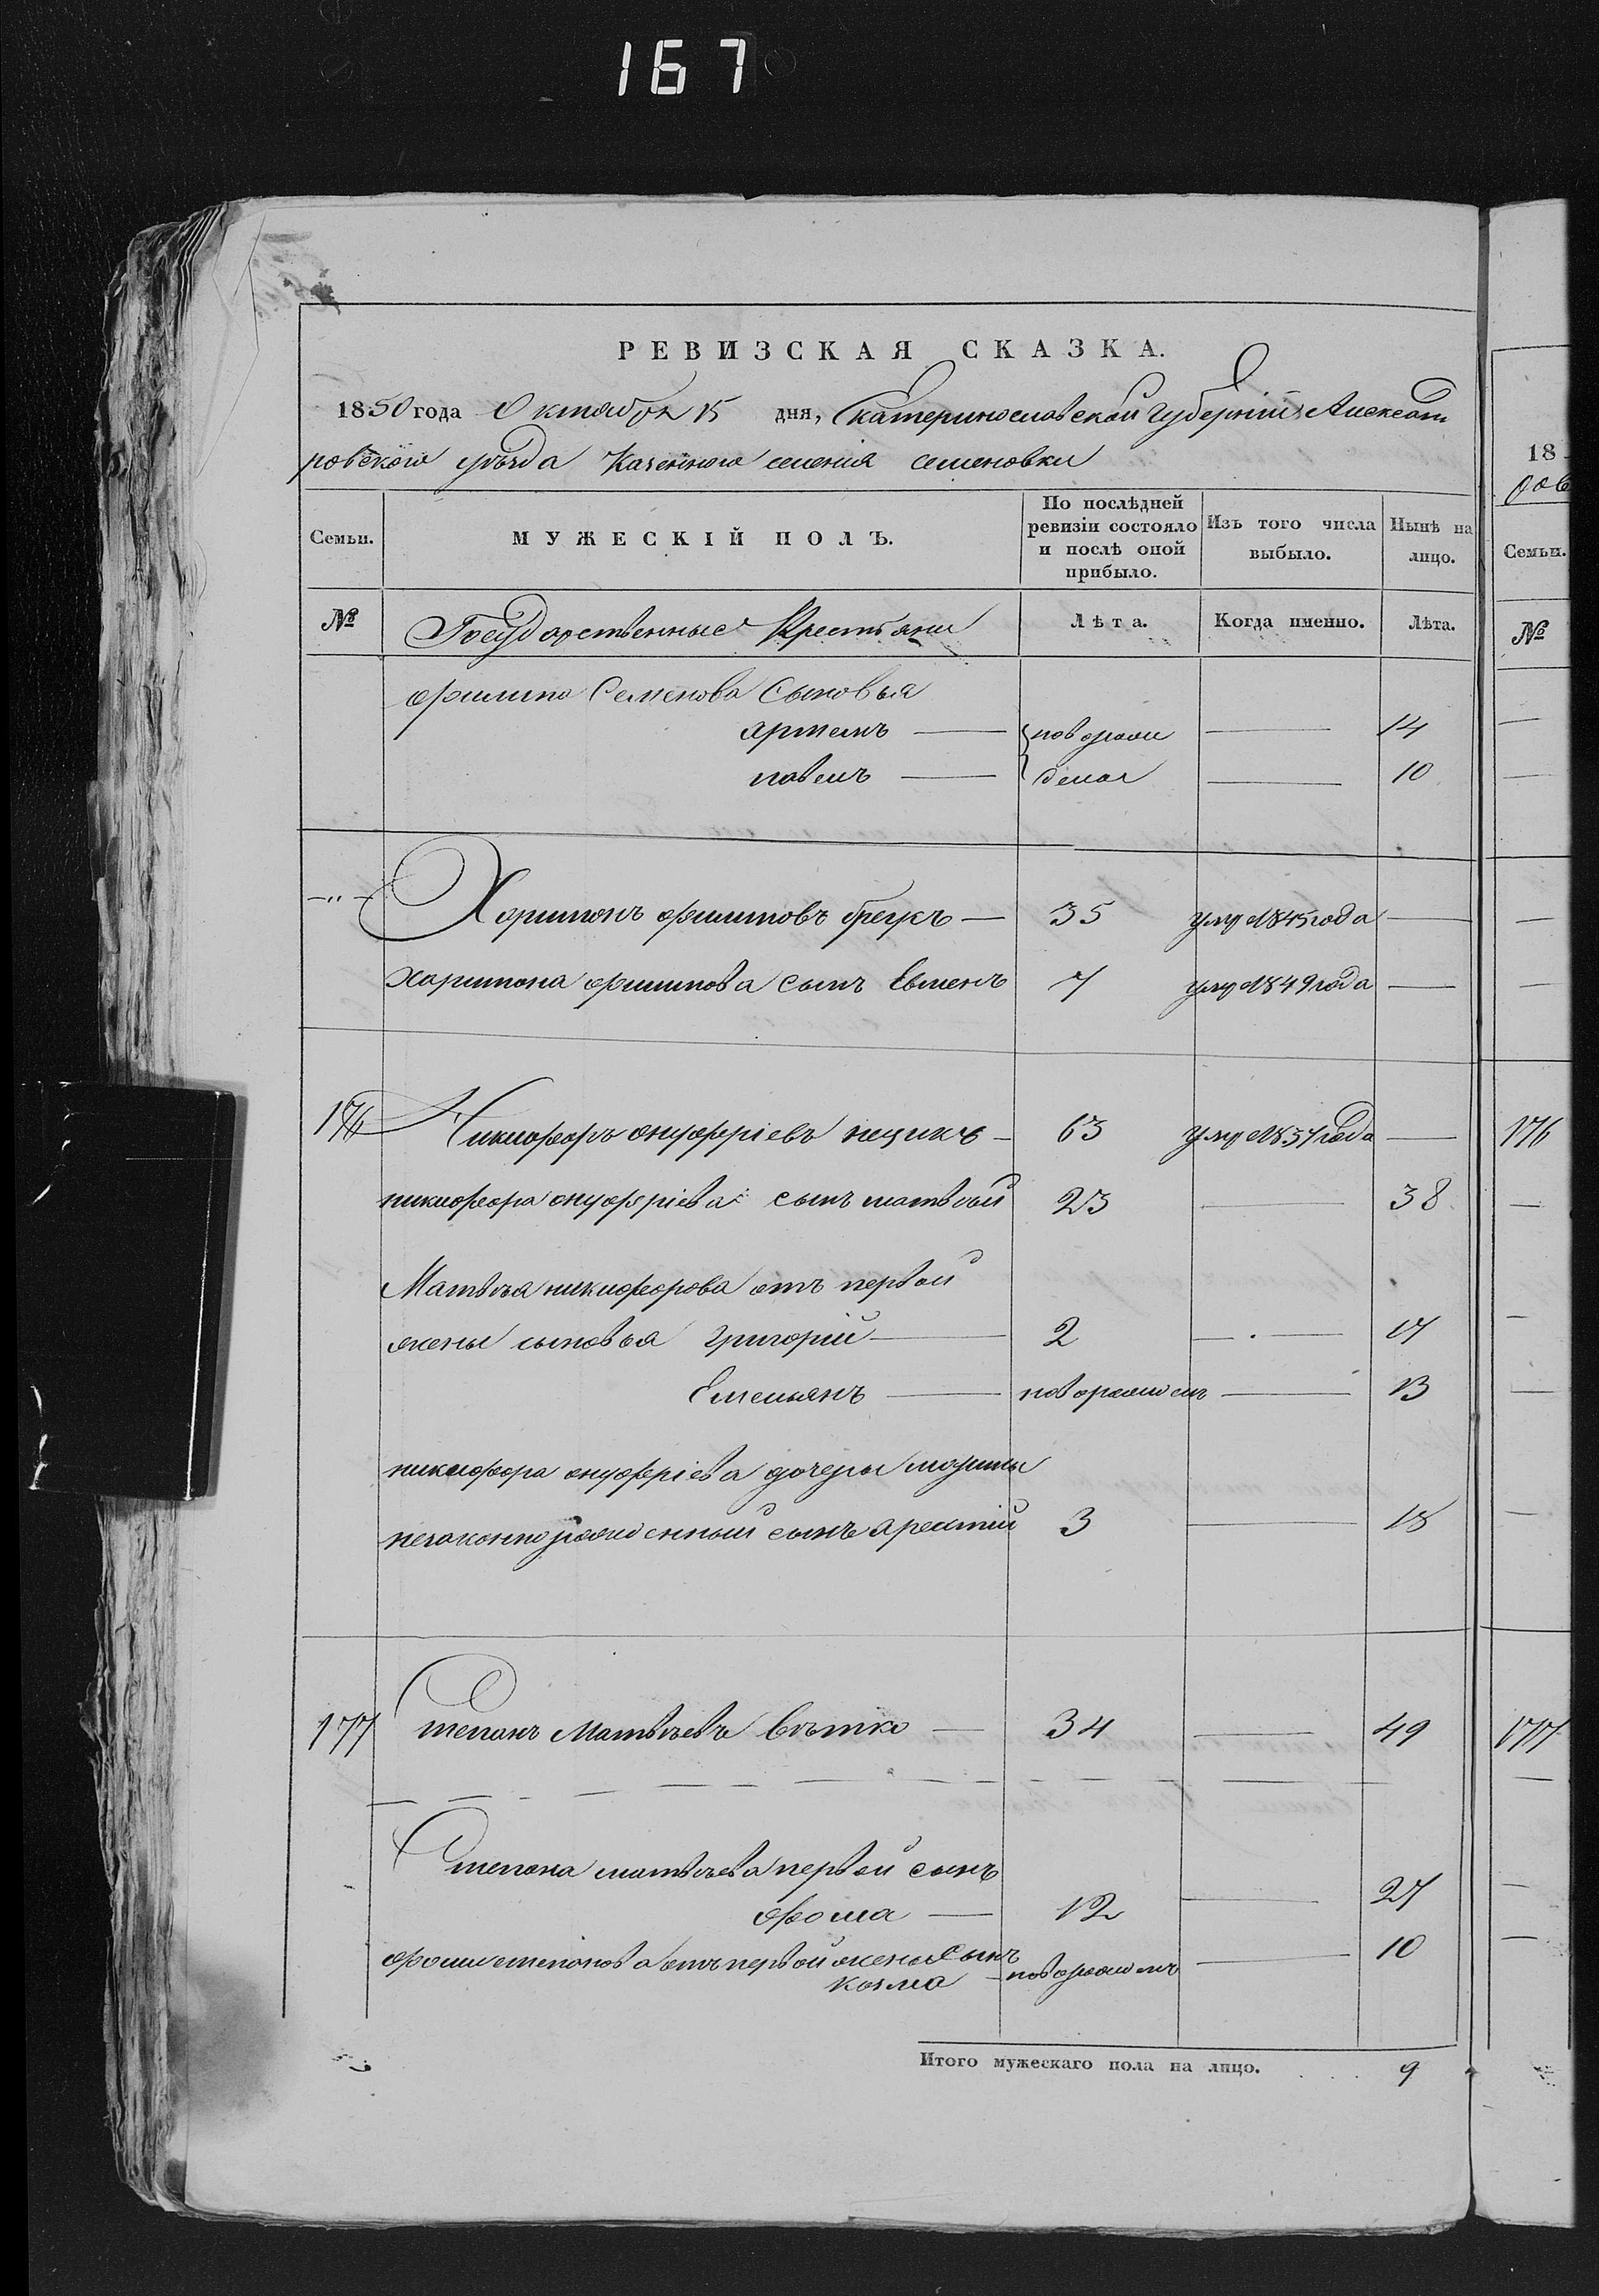 167
РЕВИЗСКАЯ СКАЗКА.
1850 года Октября 15 дня, Екатеринославской Губерніи Алексан
ровского уѣзда Казенного селенія семеновки
Семьи. МУЖЕСКІЙ ПОЛЪ. По послѣдней ревизіи состояло и послѣ оной прибыло. Изъ того числа выбыло. Нынѣ на лицо.
№ Государственные Крестьяни Лѣта. Когда именно. Лѣта.
филипа Семенова Сыновья
артемъ — новорож — 14
павелъ — дена — 10
—"— Харитонъ филиповъ — 35 умр 1845 года —
харитона филипова сынъ Евменъ 7 умр 1849 года —
176 Никифоръ онуфріевъ — 63 умр 1837 года —
никифора онуфріева сынъ матвей 23 — 38
Матвея никифорова отъ первой
жены сыновья григорій — 2 — 17
Емельянъ — новорожденъ — 13
никифора онуфріева дочеры
незаконнорожденный сынъ 3 — 18
177 Степанъ Матвеевъ — 34 — 49
Степана матвеева первой сынъ
фома — 12 — 27
фомы степанова отъ первой жены сынъ
козма — новорожденъ — 10
Итого мужескаго пола на лицо. 9
18
Семьи.
№
176
177